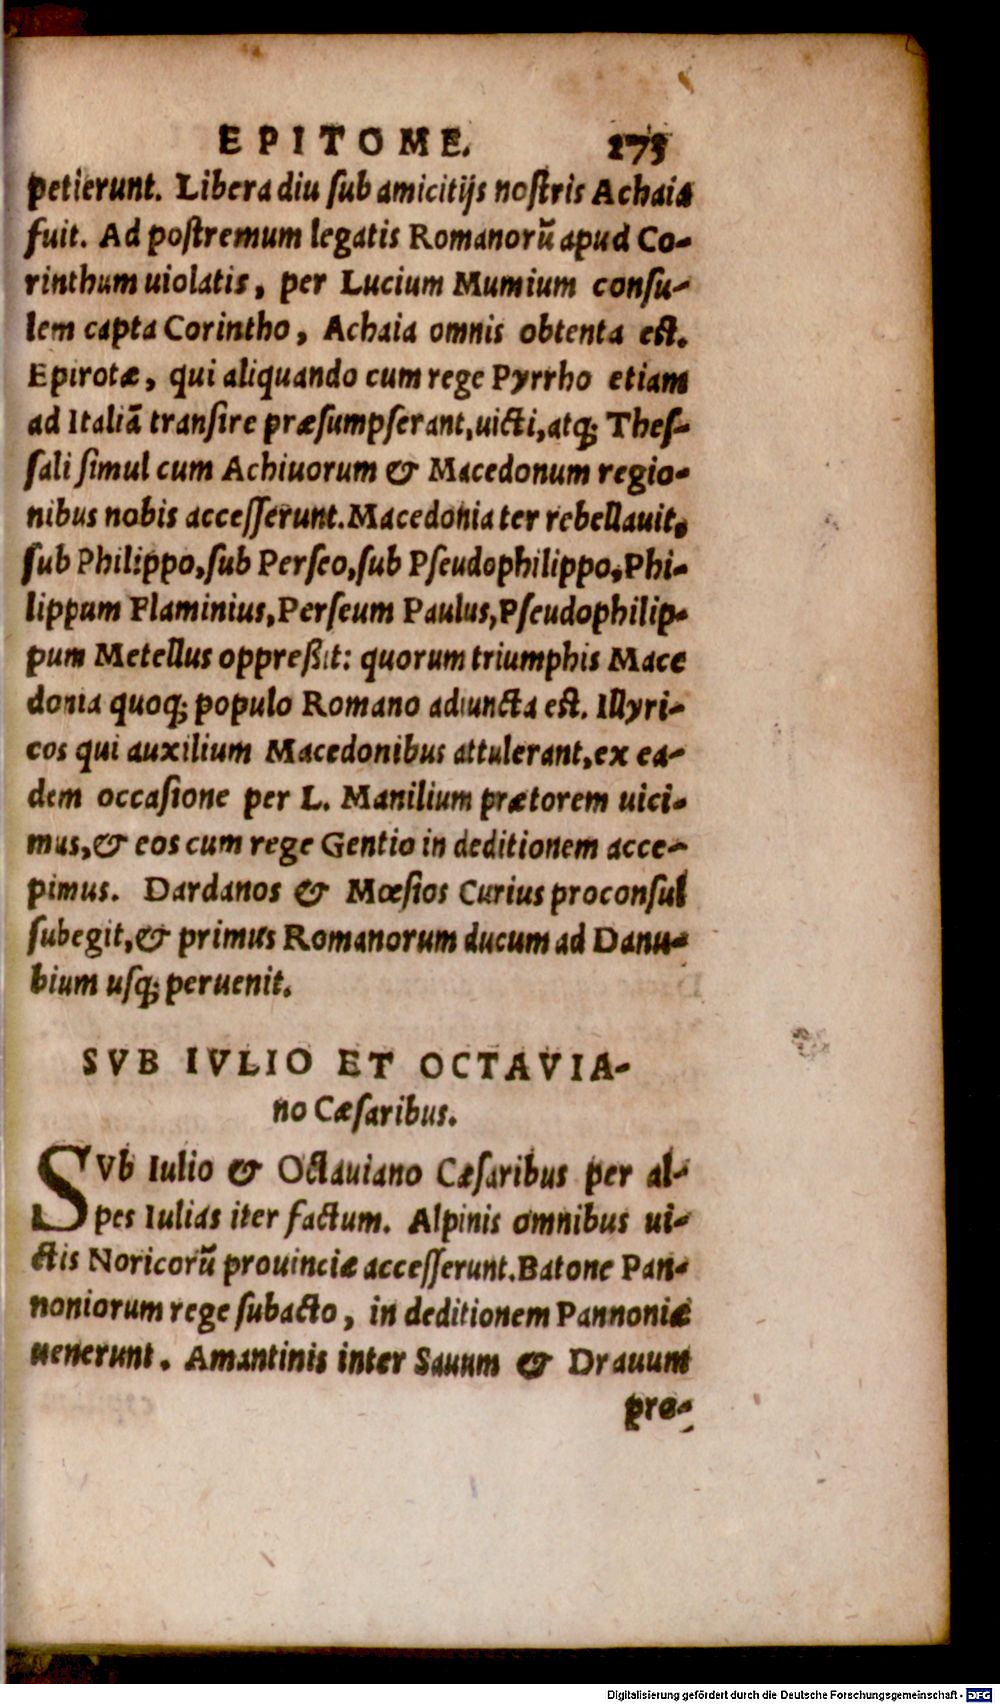 EPITOME. 273
petierunt. Libera diu ſub amicitijs noſtris Achaia
fuit. Ad poſtremum legatis Romanorũ apud Co-
rinthum uiolatis, per Lucium Mumium conſu-
lem capta Corintho, Achaia omnis obtenta eſt.
Epirotæ, qui aliquando cum rege Pyrrho etiam
ad Italiã tranſire præſumpſerant, uicti, atq; Theſ-
ſali ſimul cum Achiuorum & Macedonum regio-
nibus nobis acceſſerunt. Macedonia ter rebellauit,
ſub Philippo, ſub Perſeo, ſub Pſeudophilippo, Phi-
lippum Flaminius, Perſeum Paulus, Pſeudophilip-
pum Metellus oppreßit: quorum triumphis Mace
donia quoq; populo Romano adiuncta eſt. Illyri-
cos qui auxilium Macedonibus attulerant, ex ea-
dem occaſione per L. Manilium prætorem uici-
mus, & eos cum rege Gentio in deditionem acce-
pimus. Dardanos & Mœſios Curius proconſul
ſubegit, & primus Romanorum ducum ad Danu-
bium uſq; peruenit.
SVB IVLIO ET OCTAVIA-
no Cæſaribus.
SVb Iulio & Octauiano Cæſaribus per al-
pes Iulias iter factum. Alpinis omnibus ui-
ctis Noricorũ prouinciæ acceſſerunt. Batone Pan-
noniorum rege ſubacto, in deditionem Pannoniæ
uenerunt. Amantinis inter Sauum & Drauum
pre-
Digitalisierung gefördert durch die Deutsche Forschungsgemeinschaft - DFG